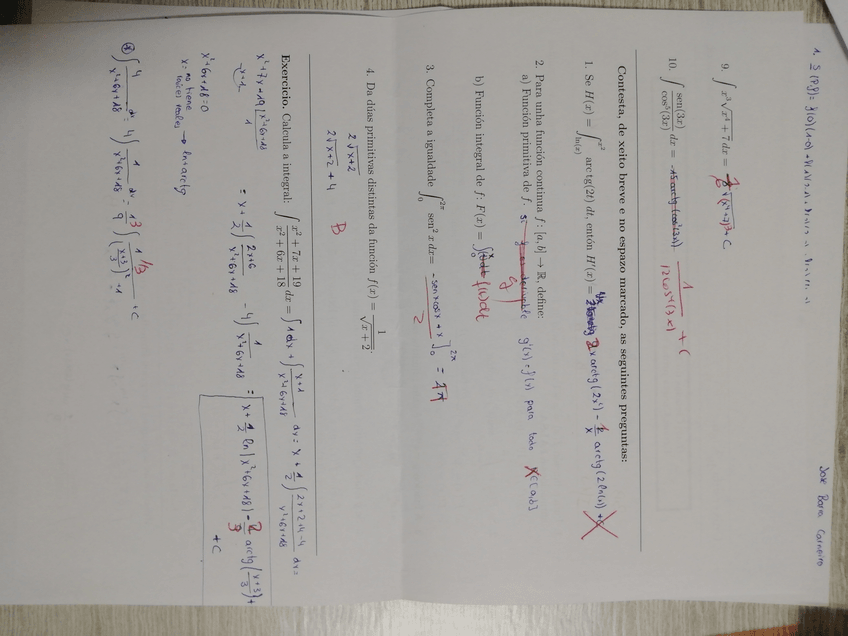 Jose Barra Carneiro
9. ∫ x³ √(x⁴ + 7) dx = 1/6 √(x⁴+7)³ + C
10. ∫ sen(3x)/cos⁵(3x) dx = 1/(12cos⁴(3x)) + C
Contesta, de xeito breve e no espazo marcado, as seguintes preguntas:
1. Se H(x) = ∫_{ln(x)}^{x²} arctg(2t) dt, entón H'(x) = 2x arctg(2x²) - 1/x arctg(2 ln(x)) + C
2. Para unha función continua f : [a, b] → ℝ, define:
a) Función primitiva de f. g g'(x) = f(x) para todo x∈[a,b]
b) Función integral de f: F(x) = ∫ f(t)dt
3. Completa a igualdade ∫_0^{2π} sen² x dx = (-senx cosx + x)/2 ]_0^{2π} = π
4. Da dúas primitivas distintas da función f(x) = 1/√(x + 2).
2√(x+2)
2√(x+2) + 4
B
Exercicio. Calcula a integral: ∫ (x² + 7x + 19)/(x² + 6x + 18) dx = ∫ 1 dx + ∫ (x+1)/(x²+6x+18) dx = x + 1/2 ∫ (2x+2+4-4)/(x²+6x+18) dx =
x²+7x+19 | x²+6x+18
x+1 1
= x + 1/2 ∫ (2x+6)/(x²+6x+18) - 4 ∫ 1/(x²+6x+18) = x + 1/2 ln|x²+6x+18| - 2/3 arctg((x+3)/3) +
+C
x²+6x+18=0
x = no tiene raices reales → ln+arctg
(*) ∫ 4/(x²+6x+18) dx = 4 ∫ 1/(x²+6x+18) dx = 1/9 3 ∫ 1/3/(((x+3)/3)²+1) + C